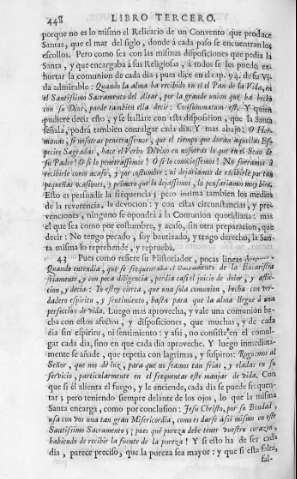 448 LIBRO TERCERO.
porque no es lo mismo el Relicario de un Convento que produce
Santas, que el mar del siglo, donde à cada paso se encuentran los
escollos. Pero como sea con las mismas disposiciones que pedia la
Santa, y que encargaba à sus Religiosas, à todos se les puede ex-
hortar la comunion de cada dia; pues dice en el cap. 94. de su vi-
da admirable: Quando la alma ha recibido en sì el Pan de la Vida, en
el Santisimo Sacramento del Altar, por la grande union que ha hecho
con su Dios, puede tambien ella decir: Consummatum est. Y quien
pudiere decir esto, y se hallare con esta disposicion, que la Santa
señala, podrà tambien comulgar cada dia. Y mas abajo: O Her-
manas, si nosotras penetrasemos, que el tiempo que duran aquellas Es-
pecies Sagradas, està el Verbo Divino en nosotras lo que en el Seno de
su Padre! O si lo penetrasemos! O si lo conociesemos! No seriamos à
recibirle como acaso, y por costumbre; ni dejariamos de recibirle por tan
pequeñas ocasiones, y primero que lo dejasemos, lo pensariamos muy bien.
Esto es persuadir la frequencia; pero insinua tambien los medios
de la reverencia, la devocion: y con estas circunstancias, y pre-
venciones, ninguno se opondrà à la Comunion quotidiana: mas
el que sea como por costumbre, y acaso, sin otra preparacion, que
decir: No tengo pecado, soy bautizado, y tengo derecho, la San-
ta misma lo reprehende, y reprueba.
43 Pues como refiere su Historiador, pocas lineas
Quando entendia, que se frequentaba el Sacramento de la Eucaristia
friamente, y con poca diligencia, perdia casi el juicio de dolor, y aflic-
cion, y decia: Yo estoy cierta, que una sola comunion, hecha con ver-
dadero espiritu, y sentimiento, basta para que la alma llegue à una
perfeccion de vida. Luego mas aprovecha, y vale una comunion he-
cha con estos afectos, y disposiciones, que muchas, y de cada
dia sin espiritu, ni sentimiento; y asi, no consiste en el comul-
gar cada dia, sino en que cada dia aproveche. Y luego inmediata-
mente se añade, que repetia con lagrimas, y suspiros: Rogamos al
Señor, que nos dè luz, para que no seamos tan frias, y eladas en su
servicio, particularmente en el frequentar este manjar de vida. Con
que si dà aliento el fuego, y le enciende, cada dia se puede frequen-
tar; pero teniendo siempre delante de los ojos, lo que la misma
Santa encarga, como por conclusion: Jesu Christo, por su Bondad,
usa con vos una tan gran Misericordia, como es darse à sì mismo en este
Santisimo Sacramento; pues què pureza debe tener vuestro corazon,
habiendo de recibir la fuente de la pureza! Y si esto ha de ser cada
dia, parece preciso, que la pureza sea mayor: y que si esta falta,